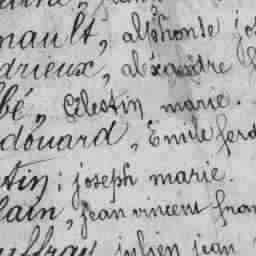 nault, alphonse jos
drieux, alexandre
bé, Célestin marie.
douard, Emile ferd
tin; joseph marie.
lain, jean vincent fran
uffray, julien jean